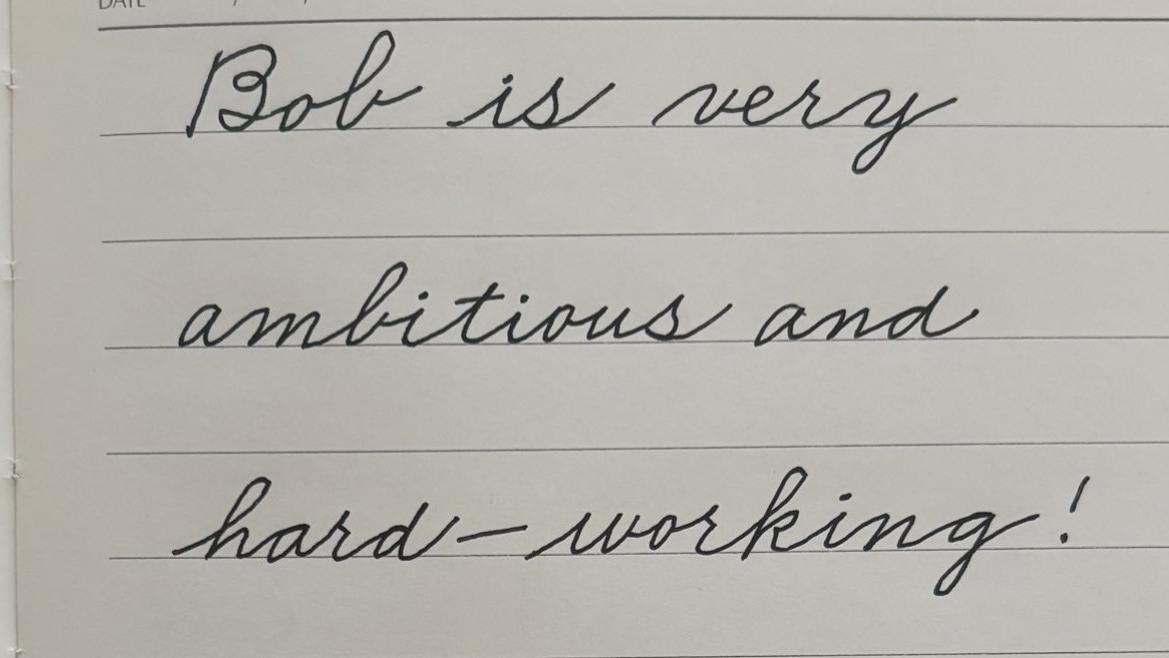 DATE
Bob is very
ambitious and
hard-working!